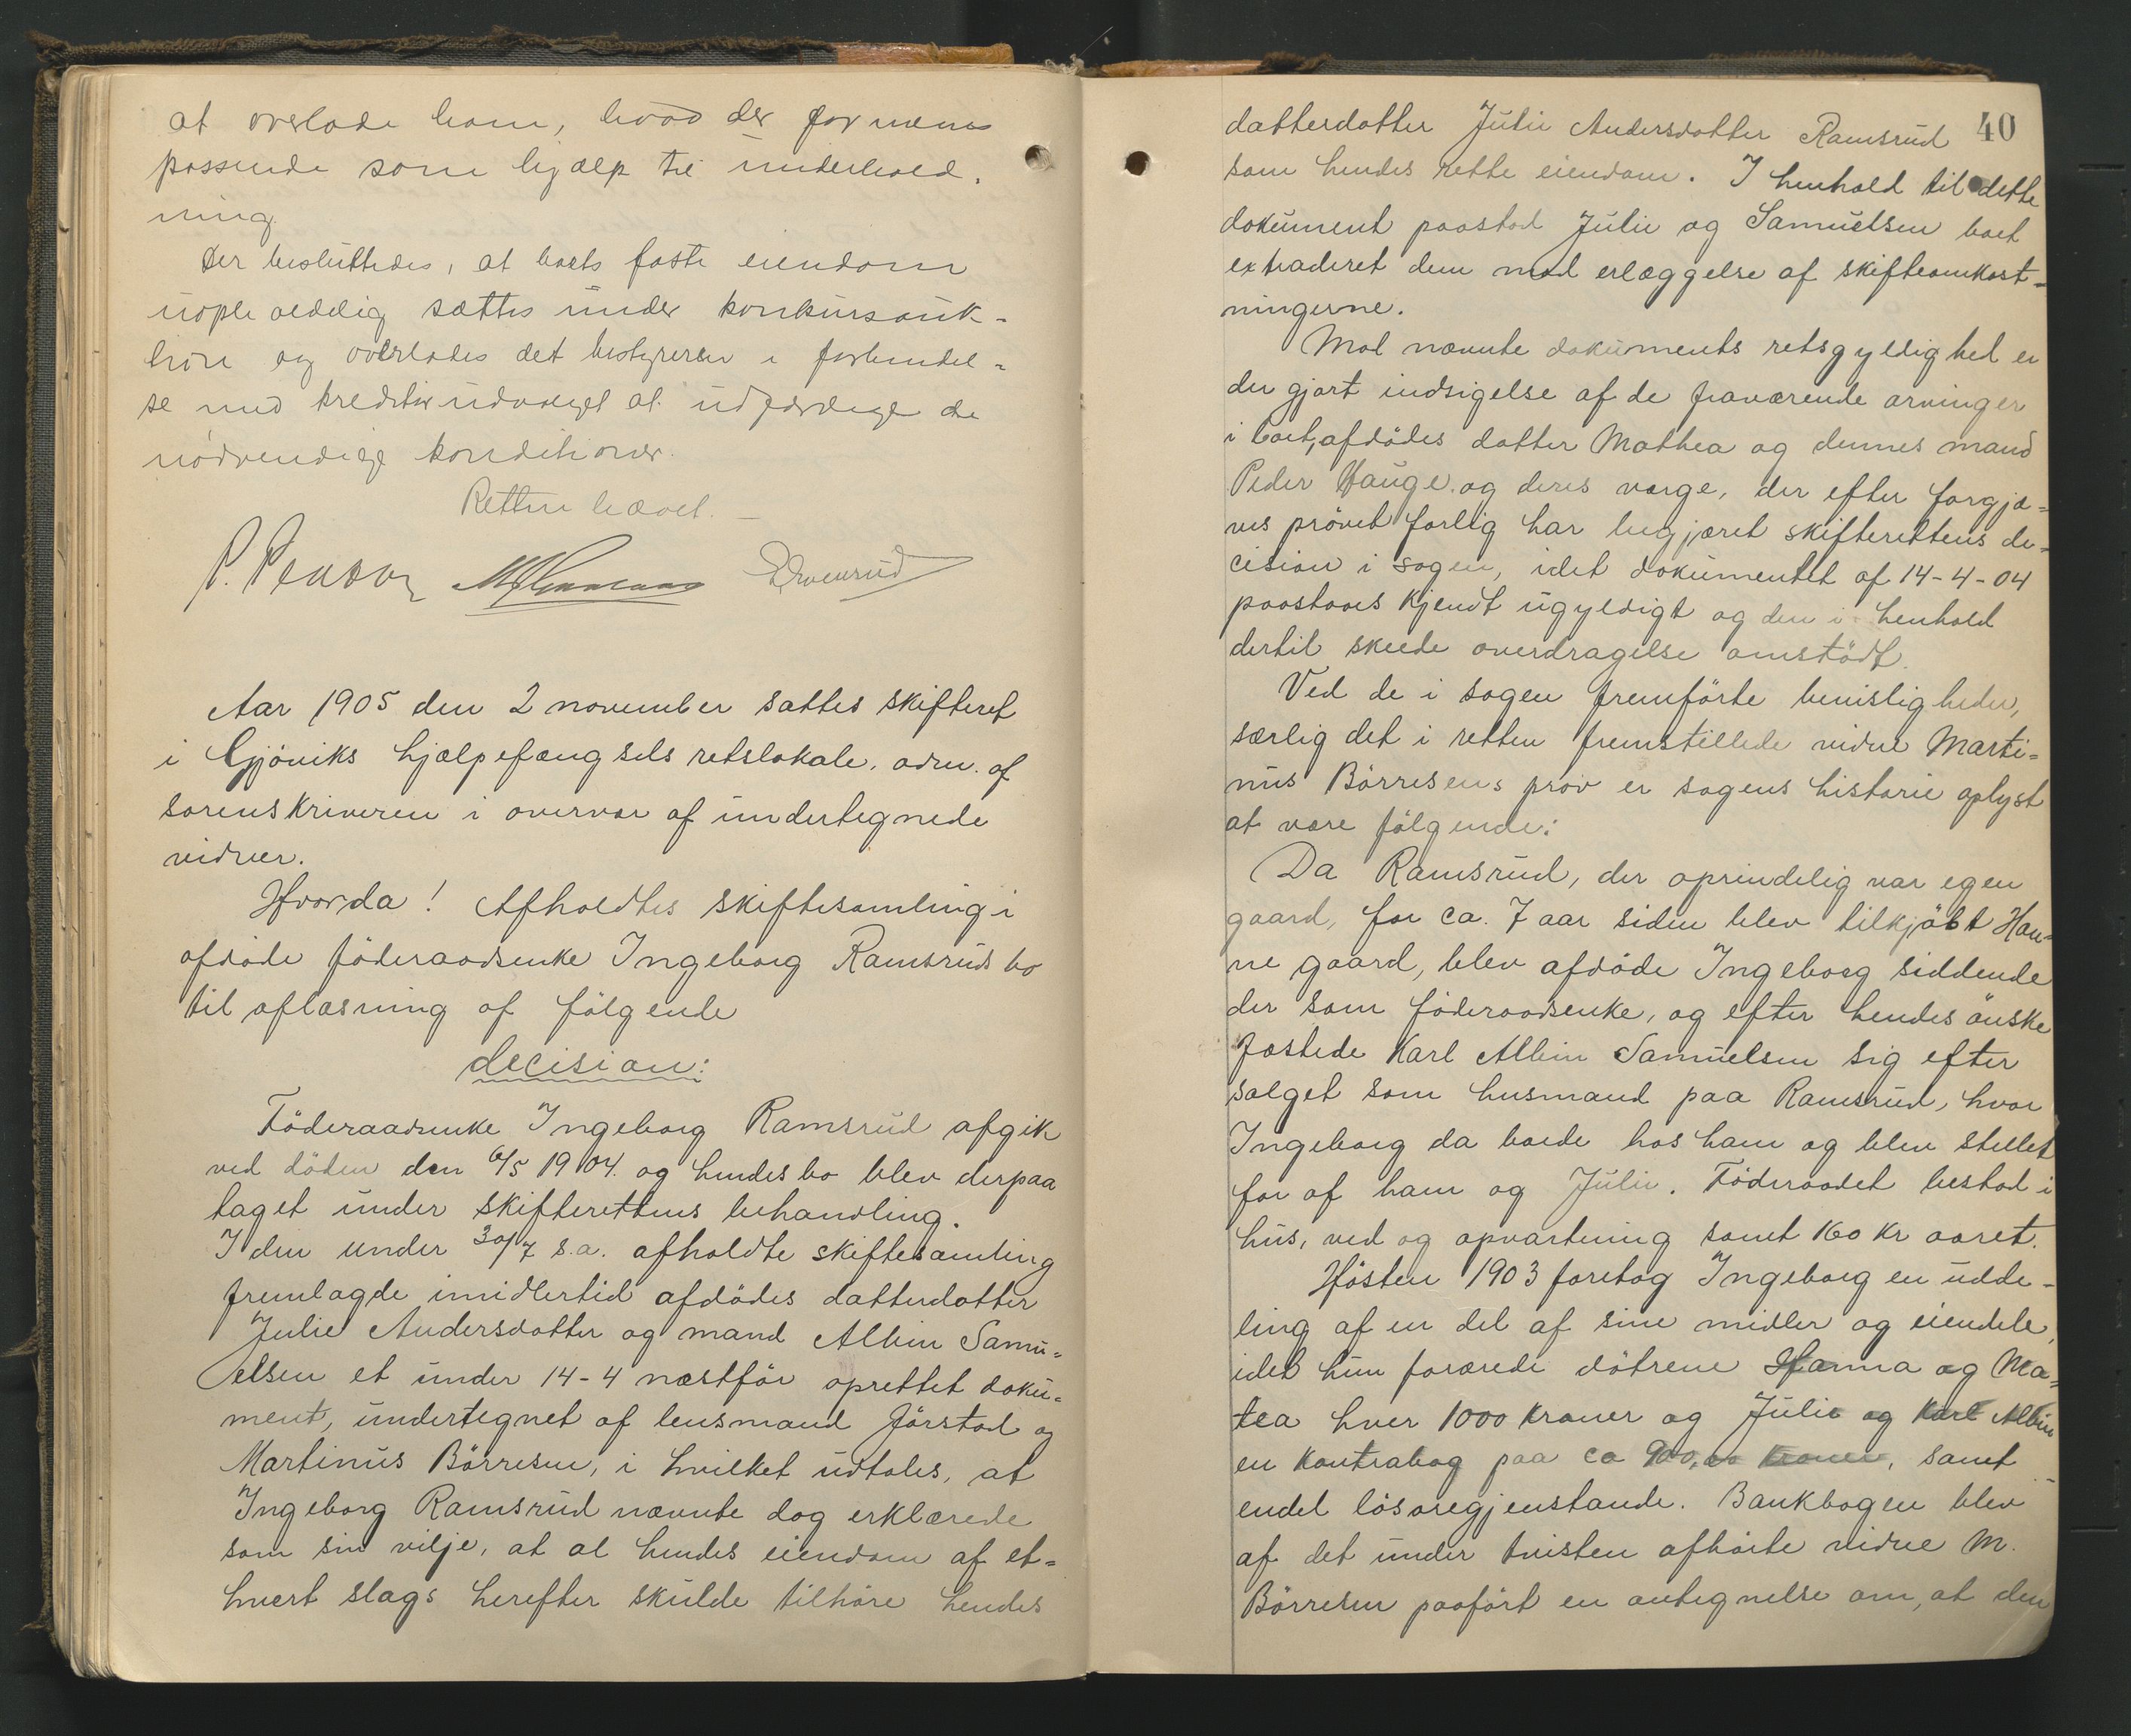 at overlade ham, hvad der formenes
passende som hjælp til underhold.
ning.
Der besluttedes, at boets faste eiendom
uopholdelig sættes under konkursauk-
tion og overlades det bestyreren i forbindel-
se med kreditorudvalget at udfærdige de
nødvendige konditioner.
Retten hævet.
Aar 1905 den 2 november sattes skifteret
i Gjöviks hjælpefængsels retslokale. adm. af
sorenskriveren i overvær af undertegnede
vidner.
Hvorda! Afholdtes skiftesamling i
afdöde föderaadsenke Ingeborg Ramsruds bo
til aflæsning af fölgende
decision:
Föderaadsenke Ingeborg Ramsrud afgik
ved döden den 6/5 1904. og hendes bo blev derpaa
taget under skifterettens behandling.
I den under 30/7 s.a. afholdte skiftesamling
fremlagde imidlertid afdödes datterdatter
Julie Andersdatter og mand Albin Samu=
elsen et under 14-4 næstför oprettet doku=
ment, undertegnet af lensmand Jörstad og
Martinus Börresen, i hvilket udtales, at
Ingeborg Ramsrud nævnte dag erklærede
som sin vilje, at al hendes eiendom af et=
hvert slags herefter skulde tilhöre hendes
40
datterdatter Julie Andersdatter Ramsrud
som hendes rette eiendom. I henhold til dette
dokument paastod Julie og Samuelsen boet
extraderet dem mod erlæggelse af skifteomkost=
ningerne.
Mod nævnte dokuments retsgyldighed er
der gjort indsigelse af de fraværende arvinger
i boet, afdödes datter Mathea og dennes mand
Peder Hauge og deres værge, der efter forgjæ=
ves prövet forlig har begjæret skifterettens de=
cision i sagen, idet dokumentet af 14-4-04
paastaaes kjendt ugyldigt og den i henhold
dertil skeede overdragelse omstödt.
Ved de i sagen fremförte bevisligheder,
særlig det i retten fremstillede vidne Marti=
nus Börresens prov er sagens historie oplyst
at være fölgende:
Da Ramsrud, der oprindelig var egen
gaard, for ca. 7 aar siden blev tilkjöbt Hau-
ne gaard, blev afdöde Ingeborg siddende
der som föderaadsenke, og efter hendes önske
fæstede Karl Albin Samuelsen sig efter
salget som husmand paa Ramsrud, hvor
Ingeborg da boede hos ham og blev stellet
for af ham og Julie. Föderaadet bestod i
hus, ved og opvartning samt 160 kr aaret.
Hösten 1903 foretog Ingeborg en udde-
ling af en del af sine midler og eiendele,
idet hun forærede dötrene Hanna og Ma=
tea hver 1000 kroner og Julie og Karl Albin
en kontrabog paa ca 900,00 kroner, samt
endel lösöregjenstande. Bankbogen blev
af det under tvisten afhörte vidne M.
Börresen paaført en antegnelse om, at den